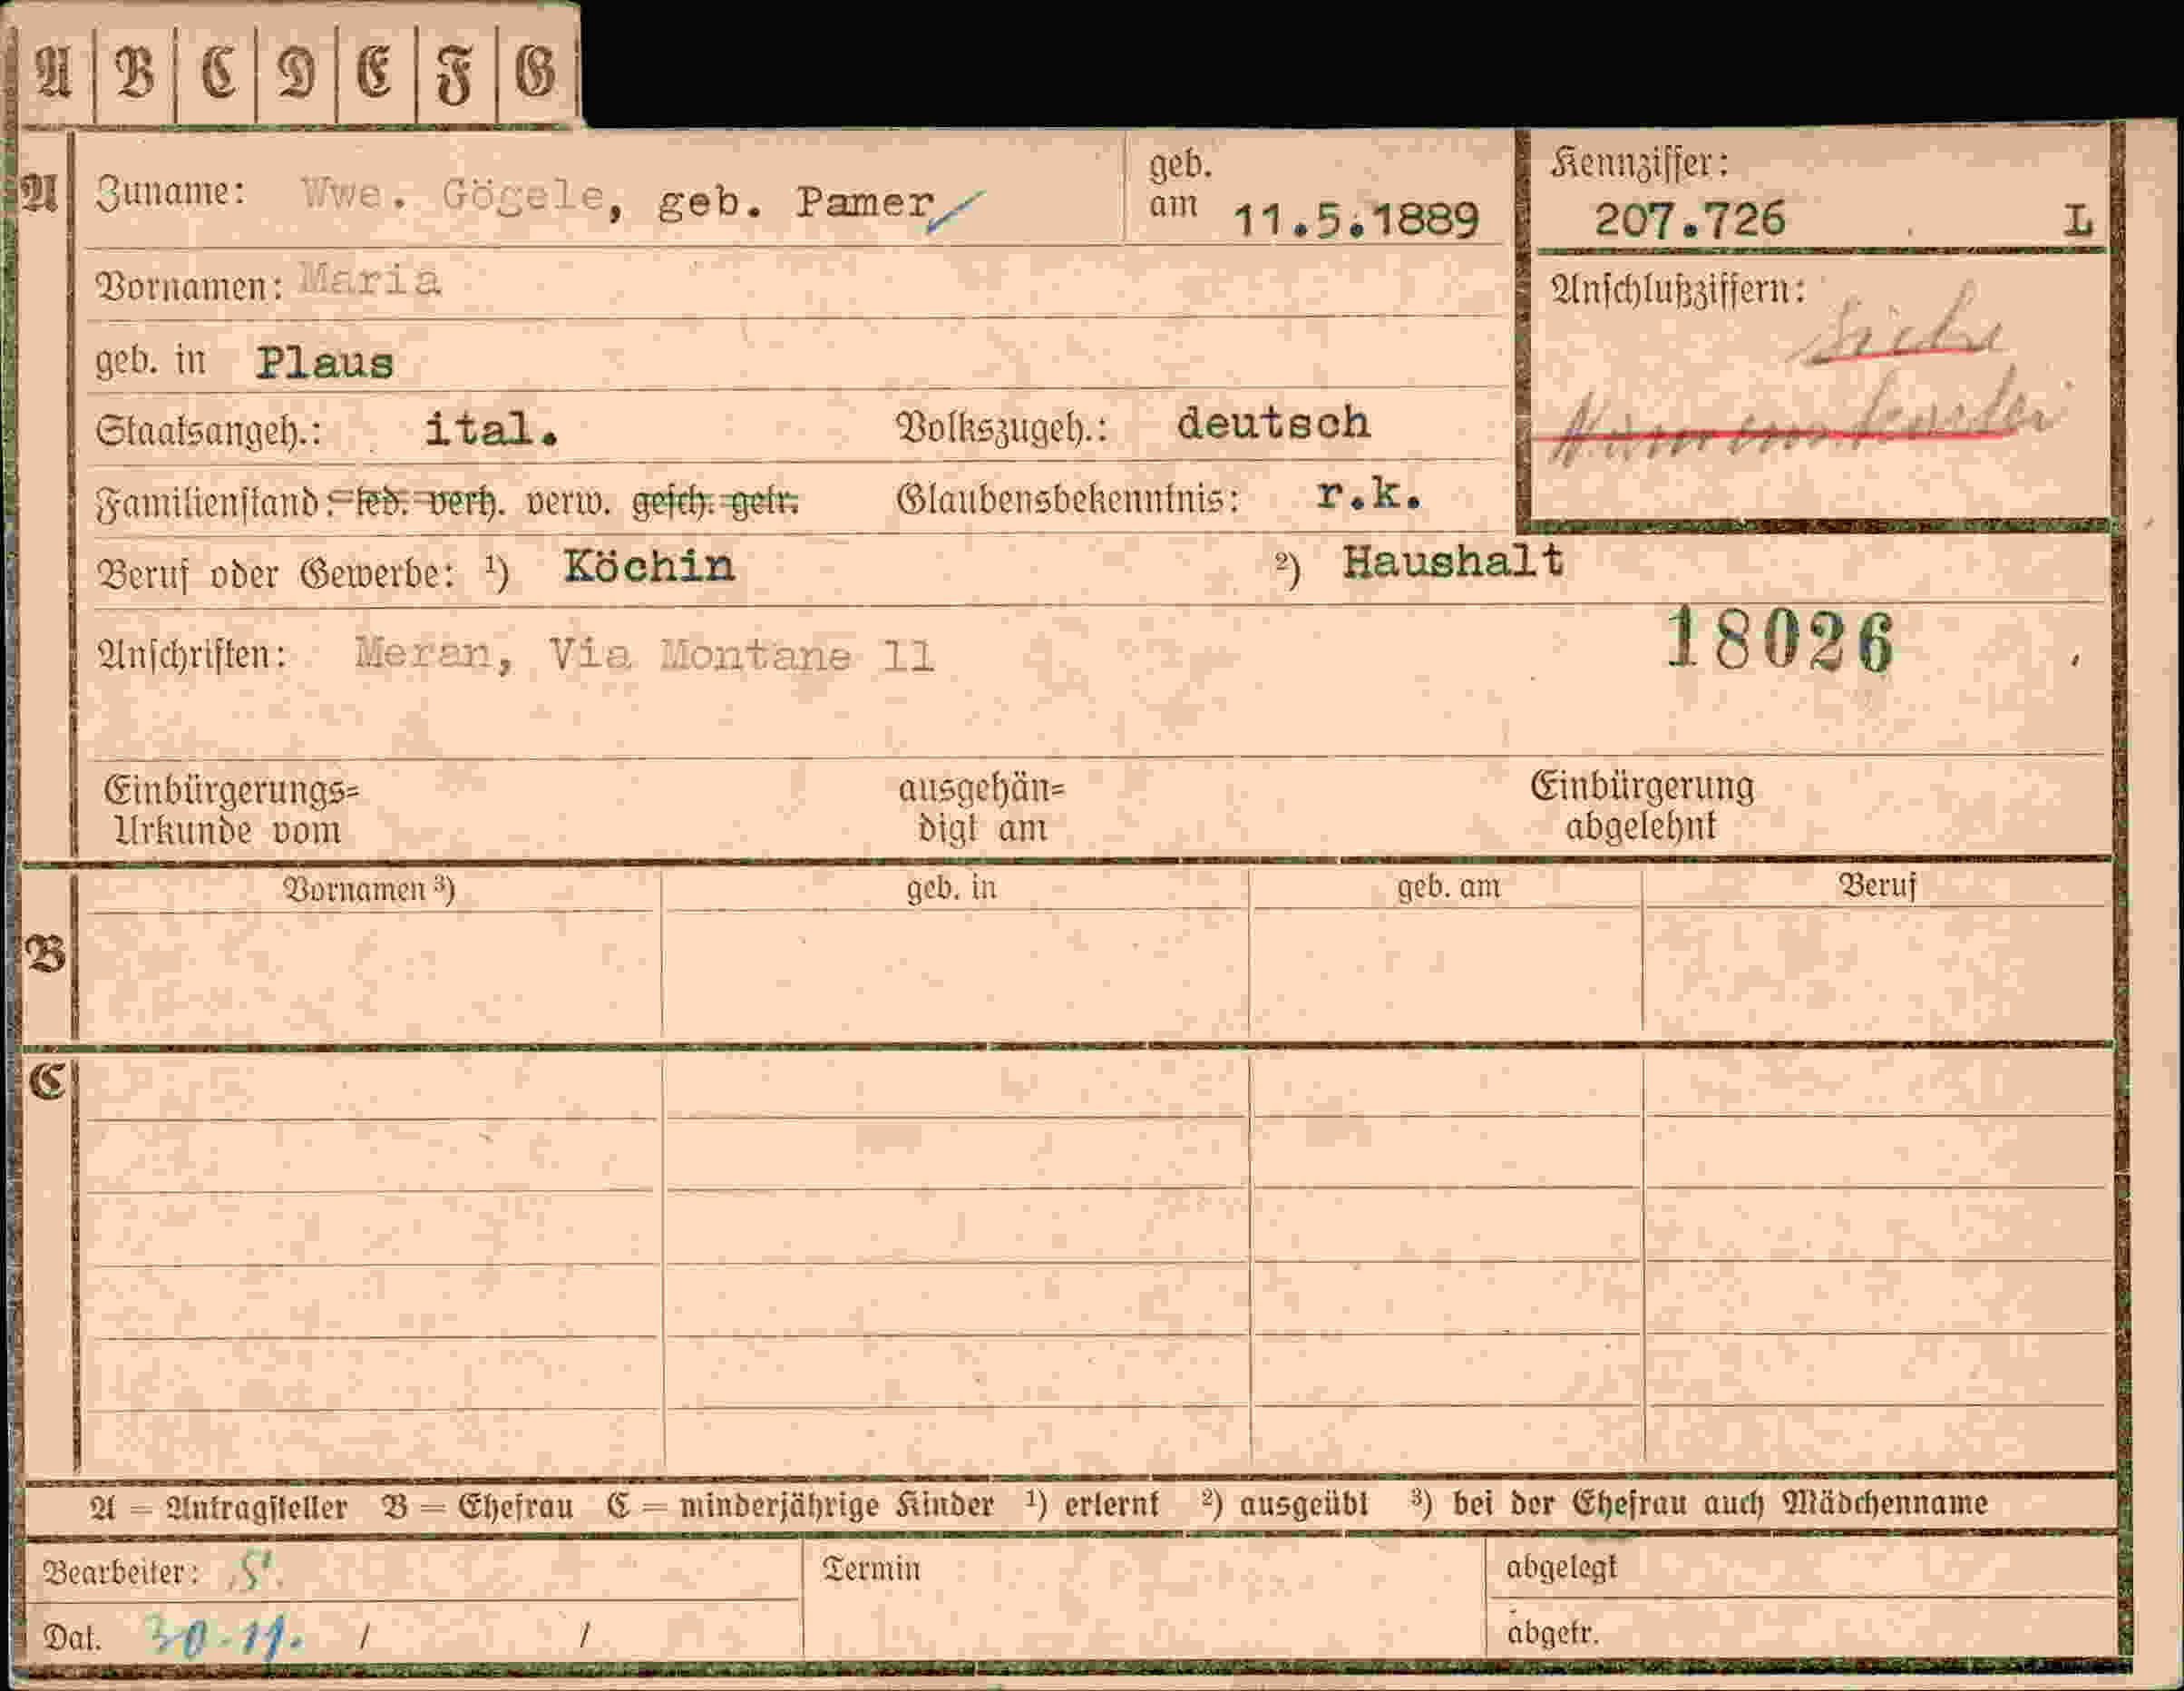 A B C D E F G
A Zuname: Wwe. Gögele, geb. Pamer
geb. am 11.5.1889
Kennziffer: 207.726 L
Vornamen: Maria
Anschlußziffern: siehe
Namenskartei
geb. in Plaus
Staatsangeh.: ital. Volkszugeh.: deutsch
Familienstand: led. verh. verw. gesch. getr. Glaubensbekenntnis: r.k.
Beruf oder Gewerbe: ¹) Köchin ²) Haushalt
Anschriften: Meran, Via Montane 11 18026
Einbürgerungs= ausgehän= Einbürgerung
Urkunde vom digt am abgelehnt
Vornamen ³) geb. in geb. am Beruf
B
C
A = Antragsteller B = Ehefrau C = minderjährige Kinder ¹) erlernt ²) ausgeübt ³) bei der Ehefrau auch Mädchenname
Bearbeiter: S. Termin abgelegt
Dat. 30.11. / / abgetr.